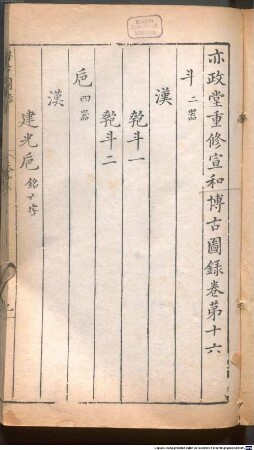 亦政堂重修宣和博古圖錄卷第十六
斗二器
漢
匏斗一
匏斗二
卮四器
漢
建光卮銘十字